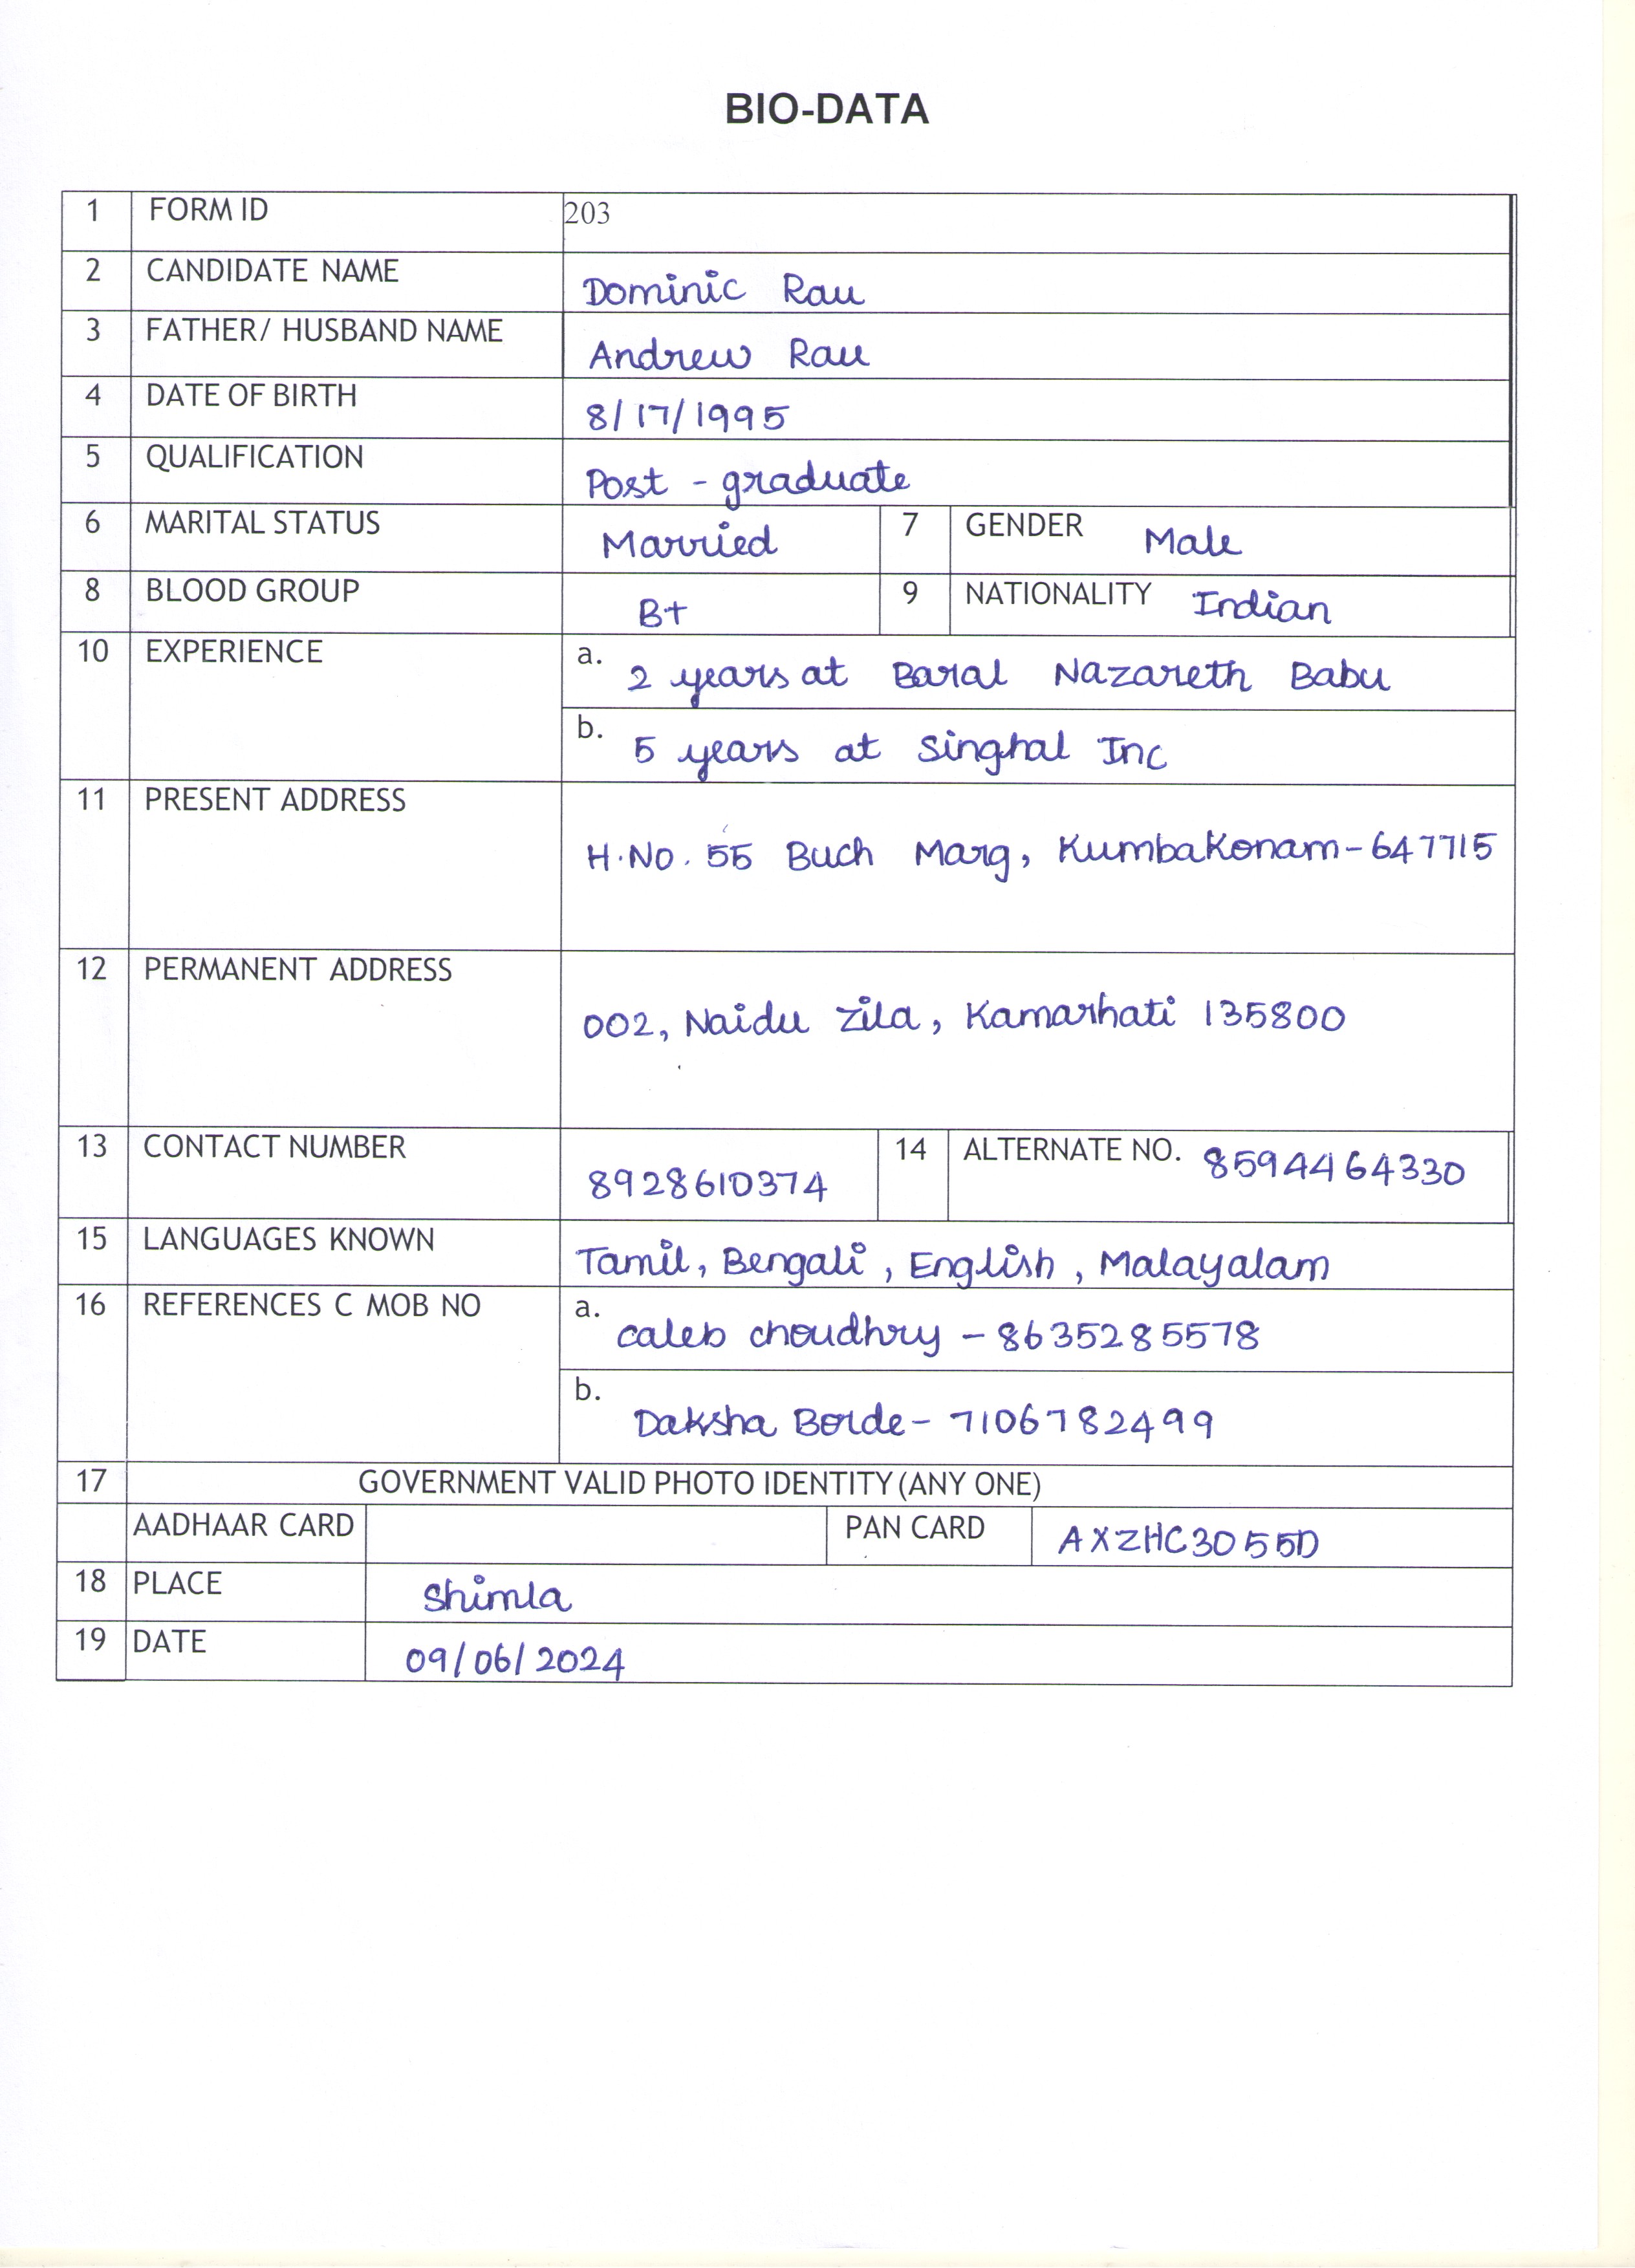 BIO-DATA
1 FORM ID 203
2 CANDIDATE NAME Dominic Rau
3 FATHER/ HUSBAND NAME Andrew Rau
4 DATE OF BIRTH 8/17/1995
5 QUALIFICATION Post - graduate
6 MARITAL STATUS Married 7 GENDER Male
8 BLOOD GROUP B+ 9 NATIONALITY Indian
10 EXPERIENCE a. 2 years at Baral Nazareth Babu
b. 5 years at Singhal Inc
11 PRESENT ADDRESS H.No. 55 Buch Marg, Kumbakonam-647715
12 PERMANENT ADDRESS 002, Naidu Zila, Kamarhati 135800
13 CONTACT NUMBER 8928610374 14 ALTERNATE NO. 8594464330
15 LANGUAGES KNOWN Tamil, Bengali, English, Malayalam
16 REFERENCES C MOB NO a. Caleb Choudhry - 8635285578
b. Daksha Borde - 7106782499
17 GOVERNMENT VALID PHOTO IDENTITY (ANY ONE)
AADHAAR CARD PAN CARD AXZHC3055D
18 PLACE Shimla
19 DATE 09/06/2024